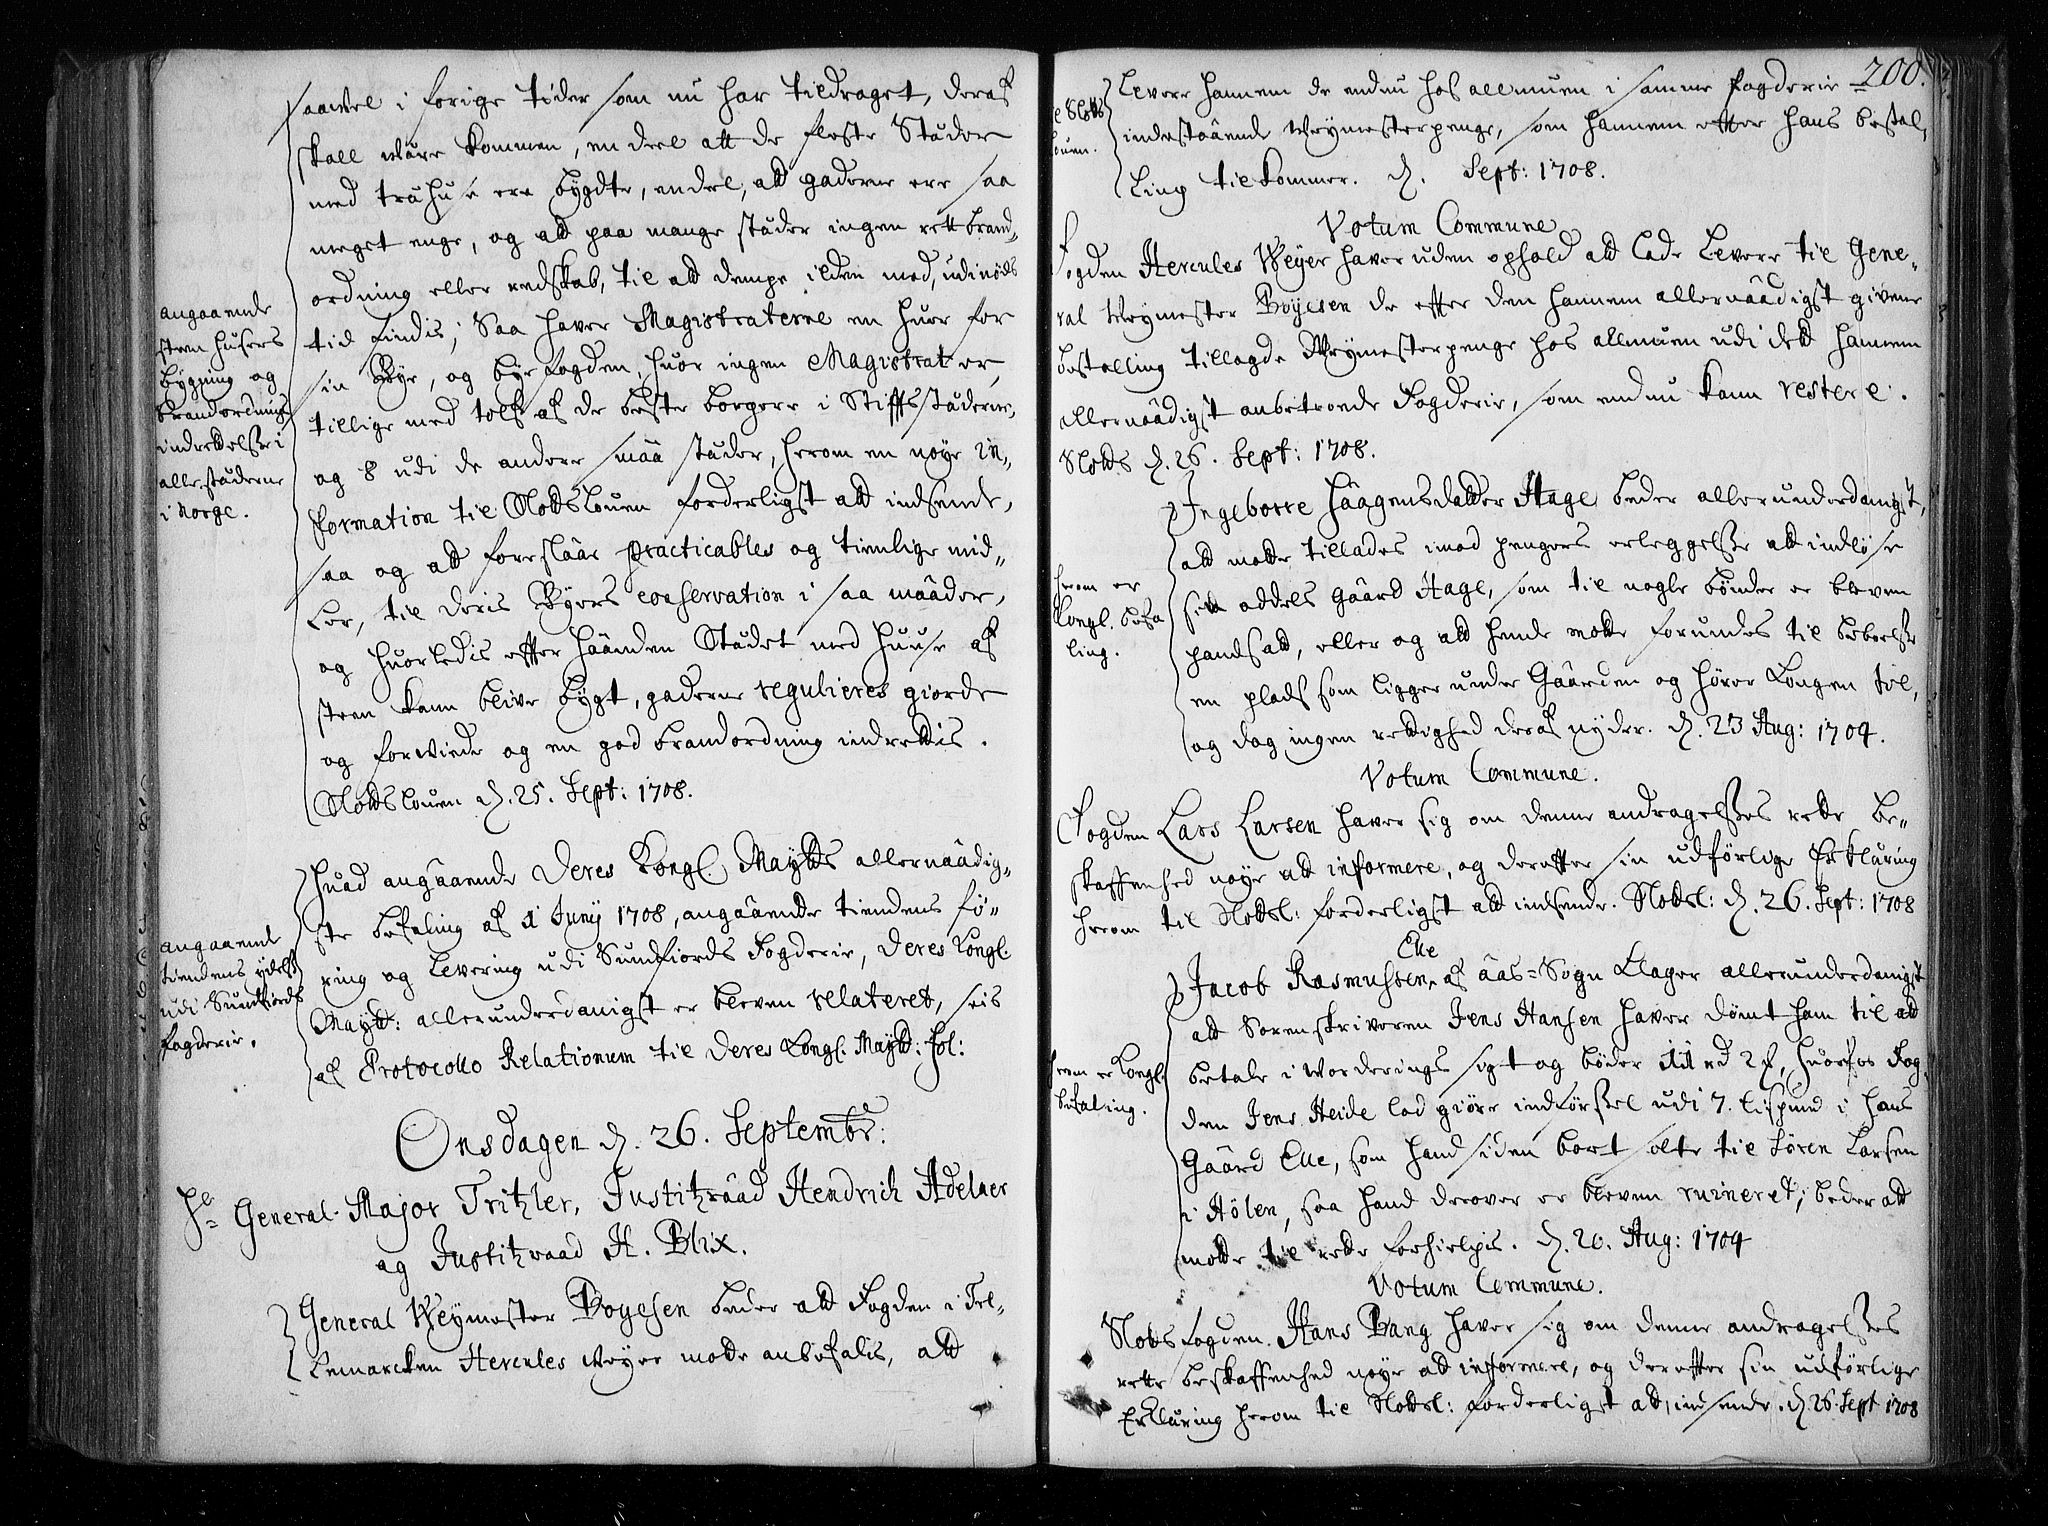 saavel i forige tider som nu har tildraget, deraf
skall være kommen, en deel att de fleste Stæder
med træhuse ere bygdte, endel, att gaderne ere saa
meget enge, og att paa mange stæder ingen rett brand-
ordning eller redskab, til att dempe ilden med, udi nøds
tid findis; Saa haver Magistraterne en huer for
sin Bye, og byefogden, huor ingen Magistrat er,
tillige med tolf af de beste borgere i Stiffs stæderne,
og 8 udi de andere smaa stæder, herom en nøye in-
formation til Slottslouen forderligst att indsende,
saa og att foreslaae practicables og tienlige mid-
ler, til deris Byers conservation i saa maader,
og huorledis efter haanden Stædet med huuse af
steen kann blive bygt, gaderne regulieres giorde
og forviede og en god brandordning indrettis.
Slottslouen d. 25. Sept: 1708.
angaaende
steen husers
bygning og
brandordnings
indrettelse i
alle stæderne
i Norge.
Huad angaaende Deres Kongl. Maytts allernaadig-
ste befaling af 1 Junij 1708, angaaende tiendens fø-
ring og levering udi Sundfiords Fogderie, Deres Kongl.
Maytt: allerunderdanigst er bleven relateret, seis
af Protocollo Relationum til Deres Kongl. Maytt: fol:
angaaende
tiendens ydelse
udi Sundfiords
fogderie.
Onsdagen d. 26. Septembr:
Hr General Major Tritzler, Justitzraad Hendrich Adelaer
og Justitzraad H. Blix.
General Weymester Boyesen beder att Fogden i Tel-
lemarcken Hercules Weyer motte anbefalis, att
200.
levere hannem de endnu hos allmuen i samme fogderie
indestaaende Veymesterpenge, som hannem effter hans bestal-
ling tilkommer. d. Sept: 1708.
e Slotts
louen.
Votum Commune
Fogden Hercules Weyer haver uden ophold att lade levere til Gene-
ral Veymester Boyesen de effter den hannem allernaadigst givene
bestalling tillagde Weymesterpenge hos allmuen udi dett hannem
allernaadigst anbetroede Fogderie, som endnu kann restere.
Slotts d. 26. Sept: 1708.
Ingeborre Haagensdatter Hage beder allerunderdanigst,
att motte tillades imod pengers erleggelse att indløse
sin oddels gaard Hage, som til nogle bønder er bleven
pandsatt, eller og att hende motte forundes til beboelse
en plads som ligger under Gaarden og hører Kongen til,
og dog ingen rettighed deraf nyder. d. 23 Aug: 1704.
herom er
Kongl. befa
ling.
Votum Commune.
Fogden Lars Larsen haver sig om denne andragelses rette be-
skaffenhed nøye att informere, og dereffter sin udførlige Erklæring
herom til Slottsl: forderligst att indsende. Slottsl: d. 26. Sept: 1708
Elle
Jacob Rasmussen, af Aas-Sogn klager allerunderdanigst
att Sorenskriveren Jens Hansen haver dømt ham til att
betale i vorderings sigt og bøder 11 rd 2 ß, huorfor Fog-
den Jens Heide lod giøre indførsel udi 7. lispund i hans
Gaard Elle, som hand siden bort solte til Søren Larsen
i Hølen, saa hand derover er bleven ruineret; beder att
motte til rette forhielpis. d. 20. Aug: 1704
herom er Kongl.
befaling.
Votum Commune.
Slotsfogden Hans Bang haver sig om denne andragelses
rette beskaffenhed nøye att informere, og dereffter sin udførlige
Erklæring herom til Slottsl: forderligst att indsende. d. 26. Sept 1708